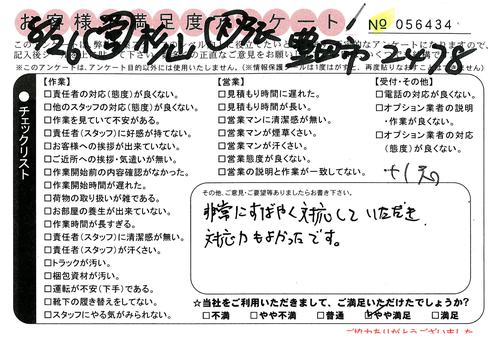 お客様満足度アンケート!
No 056434
5/26 杉山 豊田市
※このアンケートは、アンケート目的以外には使用いたしません。
チェックリスト
【作業】
□責任者の対応(態度)が良くない。
□他のスタッフの対応(態度)が良くない。
□作業を見ていて不安がある。
□責任者(スタッフ)に好感が持てない。
□お客様への挨拶が出来ていない。
□ご近所への挨拶・気遣いが無い。
□作業開始前の内容確認がなかった。
□作業開始時間が遅れた。
□荷物の取り扱いが雑である。
□お部屋の養生が出来ていない。
□作業時間が長すぎる。
□責任者(スタッフ)に清潔感が無い。
□責任者(スタッフ)が汗くさい。
□トラックが汚い。
□梱包資材が汚い。
□運転が不安(下手)である。
□靴下の履き替えをしてない。
□スタッフにやる気がみられない。
【営業】
□見積もり時間に遅れた。
□見積もり時間が長い。
□営業マンに清潔感が無い。
□営業マンが煙草くさい。
□営業マンが汗くさい。
□営業態度が良くない。
□営業の説明と作業が一致してない。
【受付・その他】
□電話の対応が良くない。
□オプション業者の説明
・作業が良くない。
□オプション業者の対応
(態度)が良くない。
その他、ご意見・ご要望等ありましたらお書き下さい。
非常にすばやく対応して いただき
対応力もよかったです。
☆当社をご利用いただきまして、ご満足いただけたでしょうか?
□不満 □やや不満 □普通 □やや満足 □満足
ご協力ありがとうございました